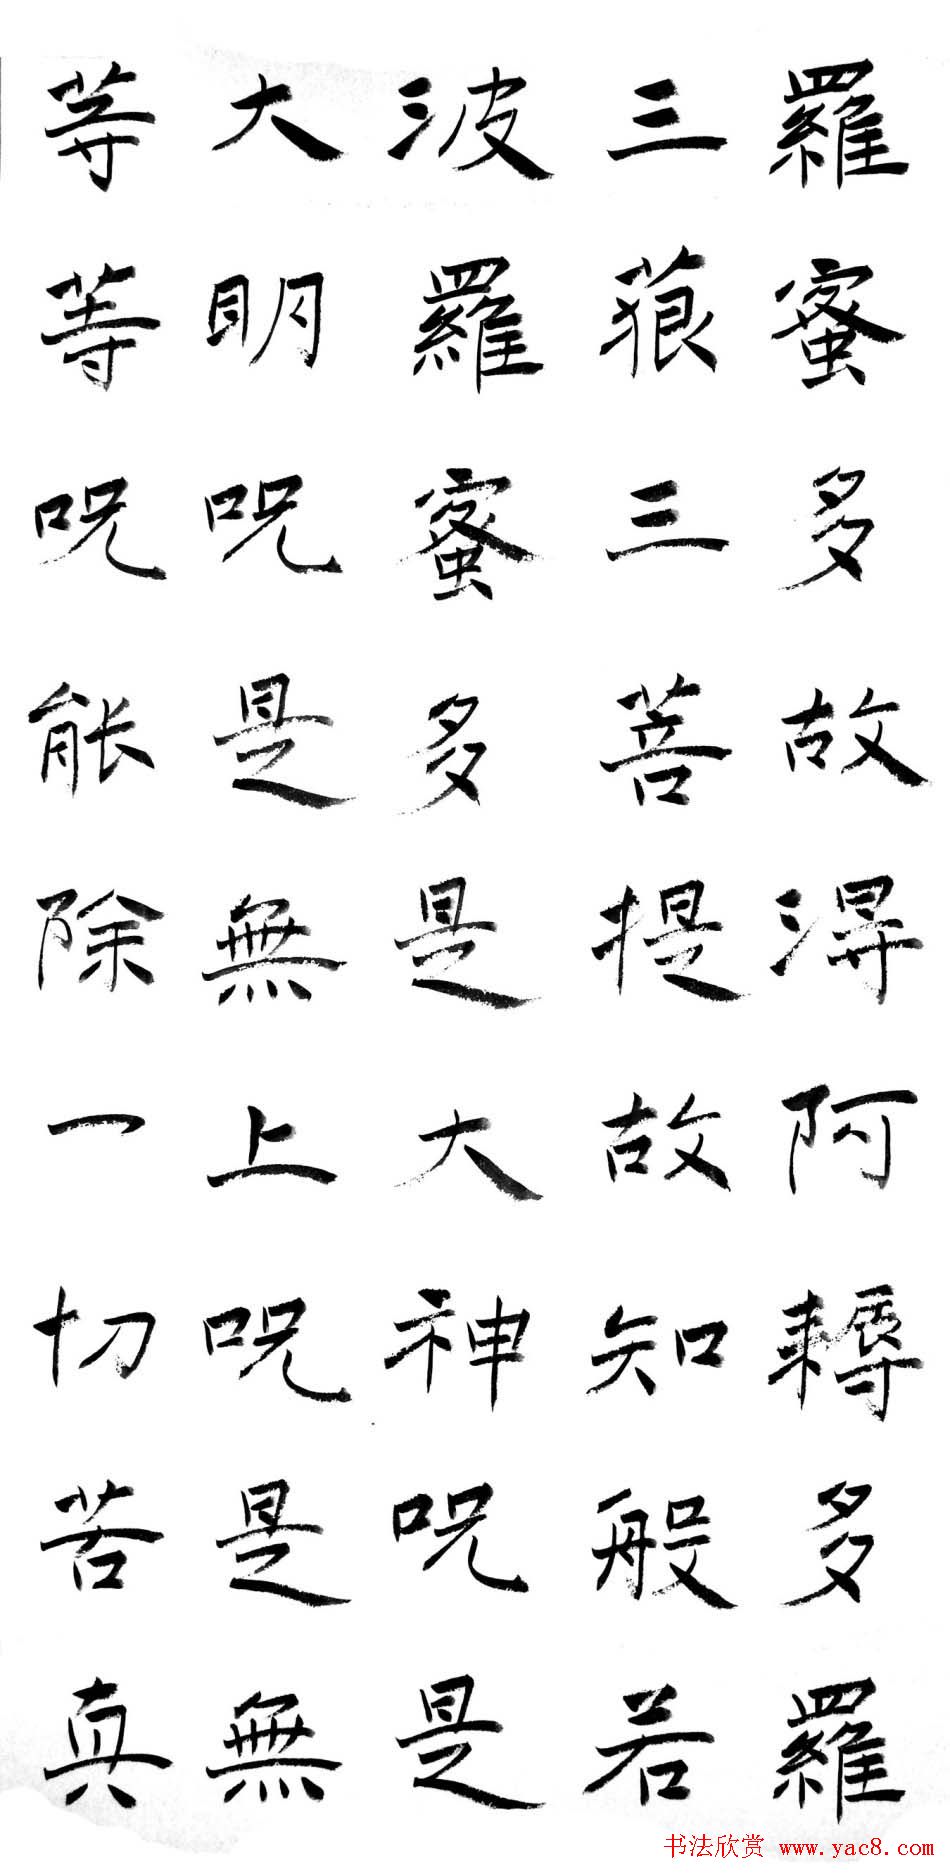 羅蜜多故得阿耨多羅
三藐三菩提故知般若
波羅蜜多是大神咒是
大明咒是無上咒是無
等等咒能除一切苦真
书法欣赏 www.yac8.com